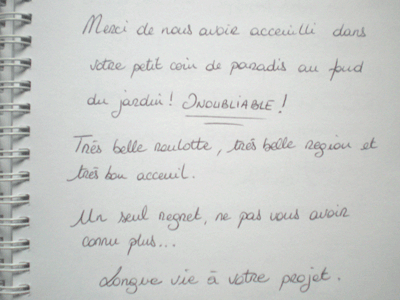 Merci de nous avoir acceuilli dans
votre petit coin de paradis au fond
du jardin! INOUBLIABLE!
Très belle roulotte, très belle region et
très bon acceuil.
Un seul regret, ne pas vous avoir
connu plus...
Longue vie à votre projet.